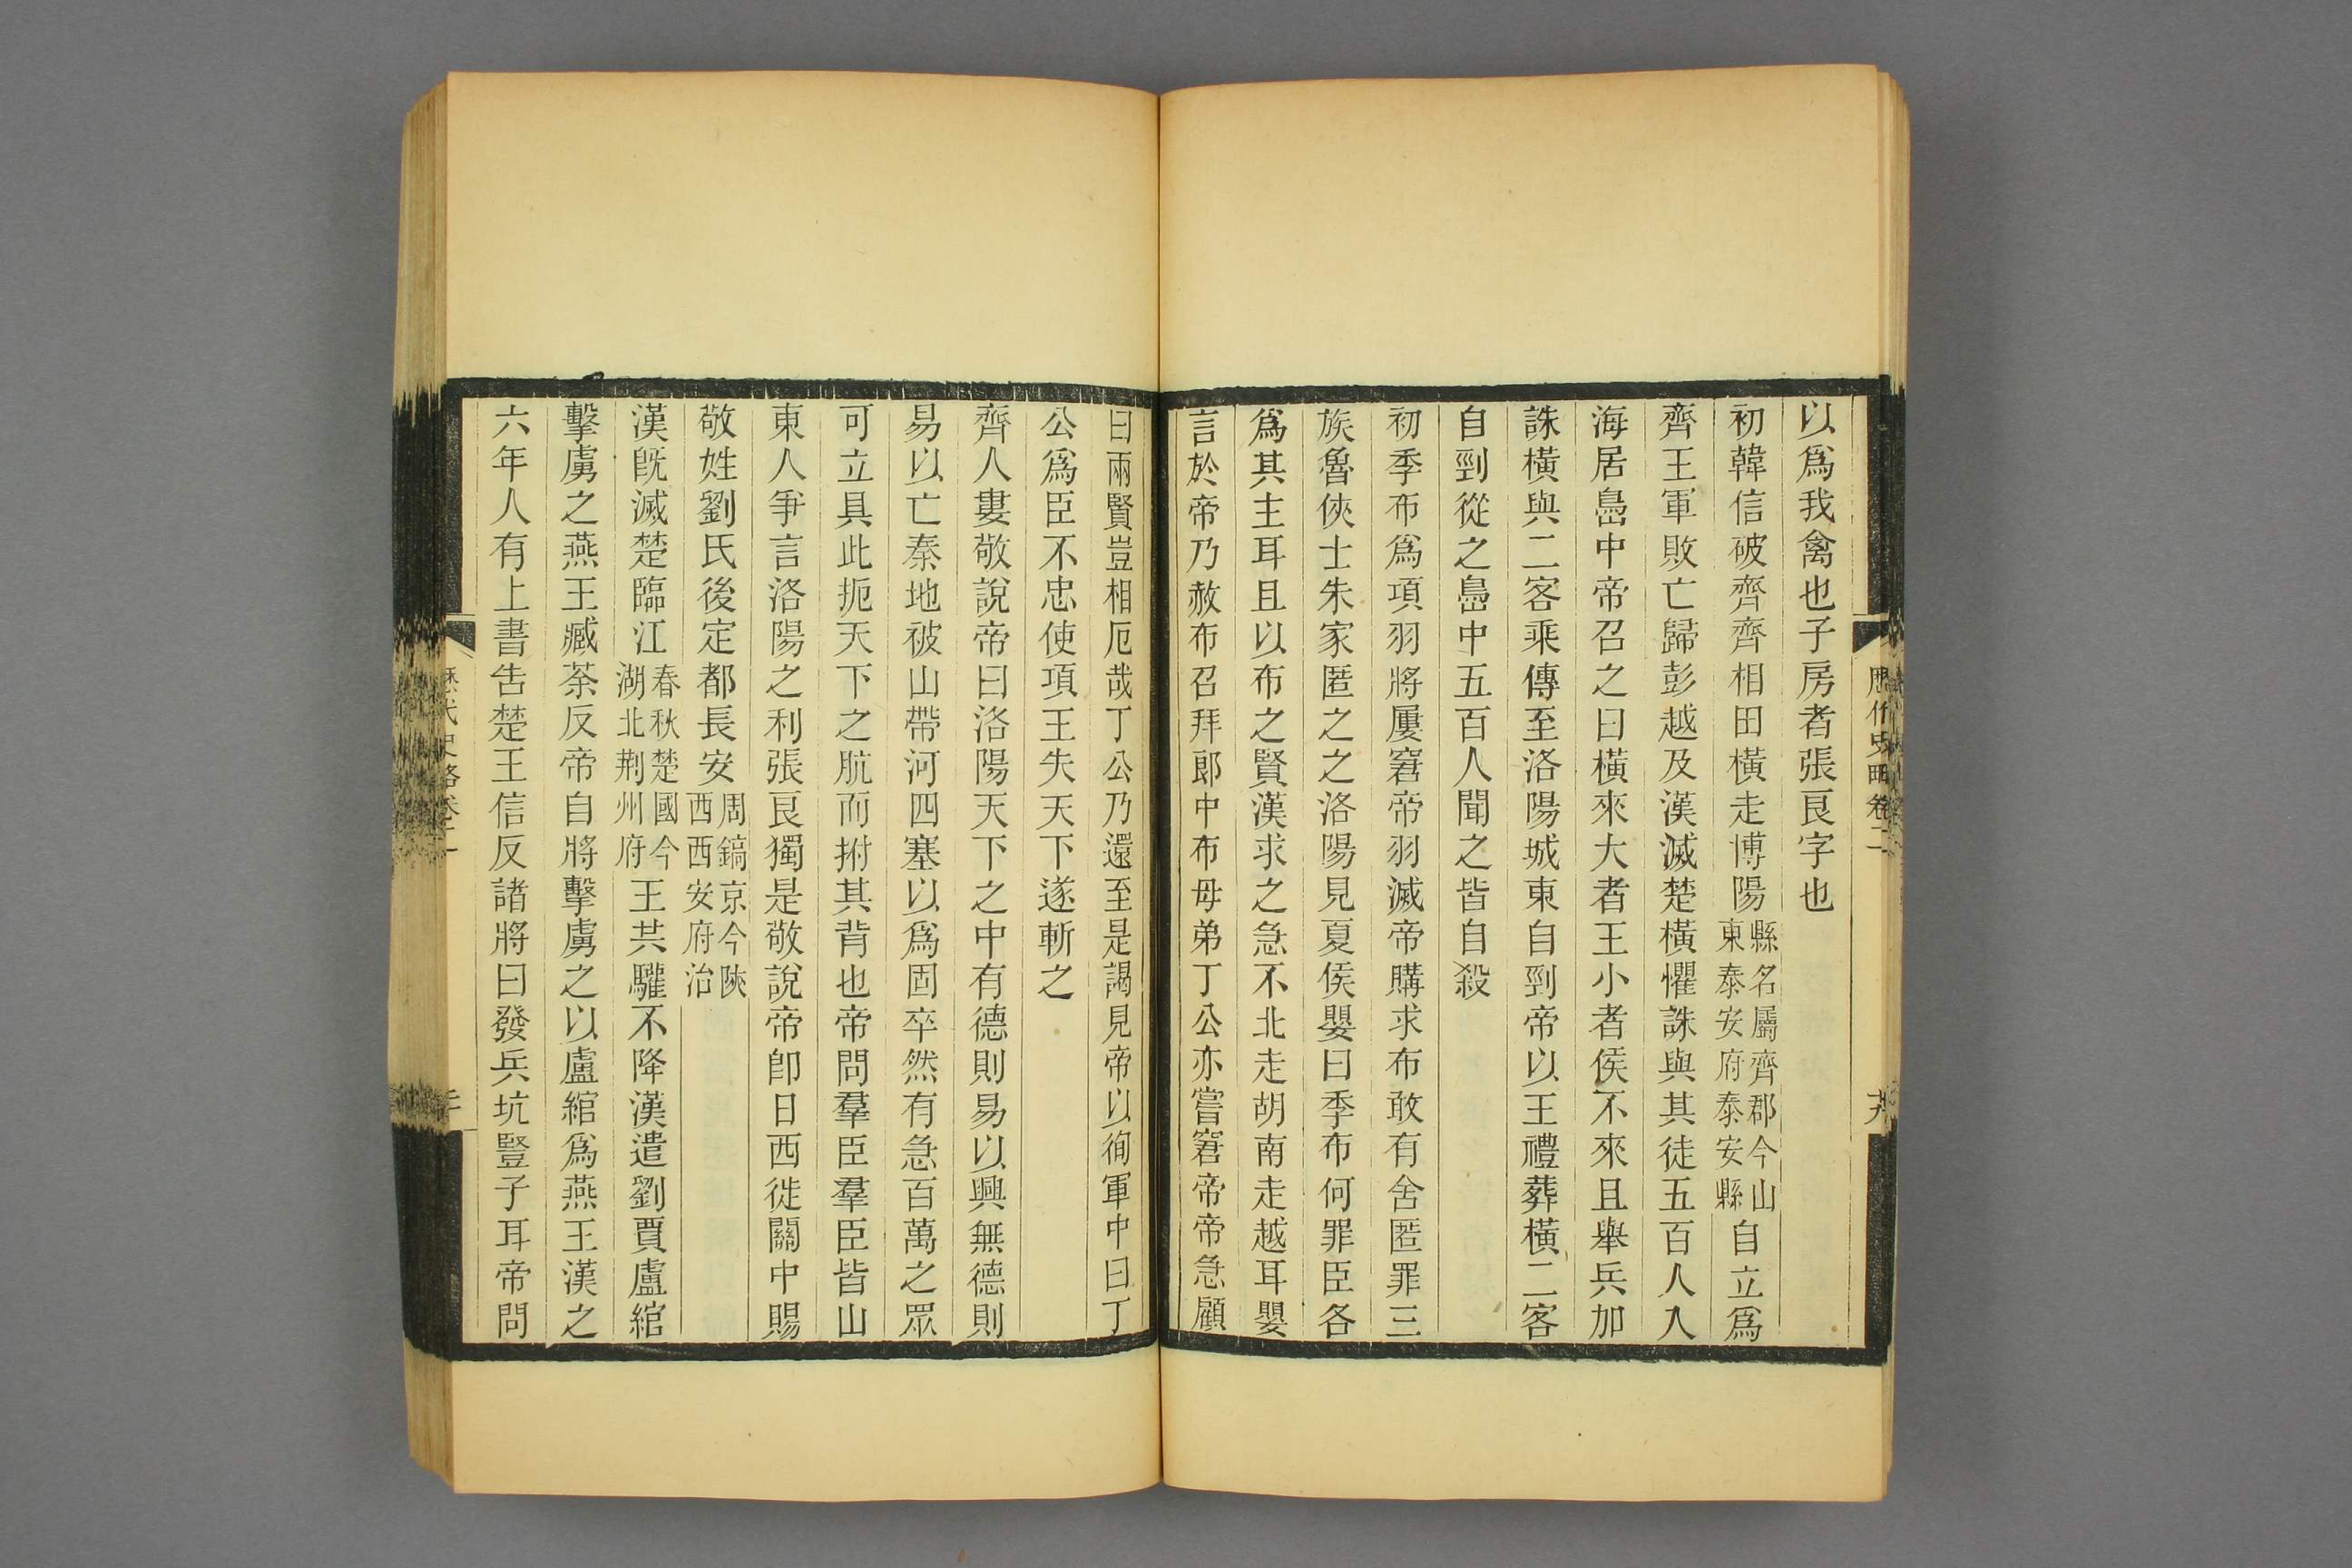 歷代史略卷二
十九
以爲我禽也子房者張良字也
初韓信破齊齊相田橫走博陽縣名屬齊郡今山東泰安府泰安縣自立爲
齊王軍敗亡歸彭越及漢滅楚橫懼誅與其徒五百人入
海居島中帝召之曰橫來大者王小者侯不來且舉兵加
誅橫與二客乘傳至洛陽城東自剄帝以王禮葬橫二客
自剄從之島中五百人聞之皆自殺
初季布爲項羽將屢窘帝羽滅帝購求布敢有舍匿罪三
族魯俠士朱家匿之之洛陽見夏侯嬰曰季布何罪臣各
爲其主耳且以布之賢漢求之急不北走胡南走越耳嬰
言於帝乃赦布召拜郎中布母弟丁公亦嘗窘帝帝急顧
曰兩賢豈相厄哉丁公乃還至是謁見帝以徇軍中曰丁
公爲臣不忠使項王失天下遂斬之
齊人婁敬說帝曰洛陽天下之中有德則易以興無德則
易以亡秦地被山帶河四塞以爲固卒然有急百萬之眾
可立具此扼天下之肮而拊其背也帝問羣臣羣臣皆山
東人爭言洛陽之利張良獨是敬說帝卽日西徙關中賜
敬姓劉氏後定都長安周鎬京今陝西西安府治
漢旣滅楚臨江春秋楚國今湖北荆州府王共驩不降漢遣劉賈盧綰
擊虜之燕王臧荼反帝自將擊虜之以盧綰爲燕王漢之
六年人有上書吿楚王信反諸將曰發兵坑豎子耳帝問
歷代史略卷二
二十